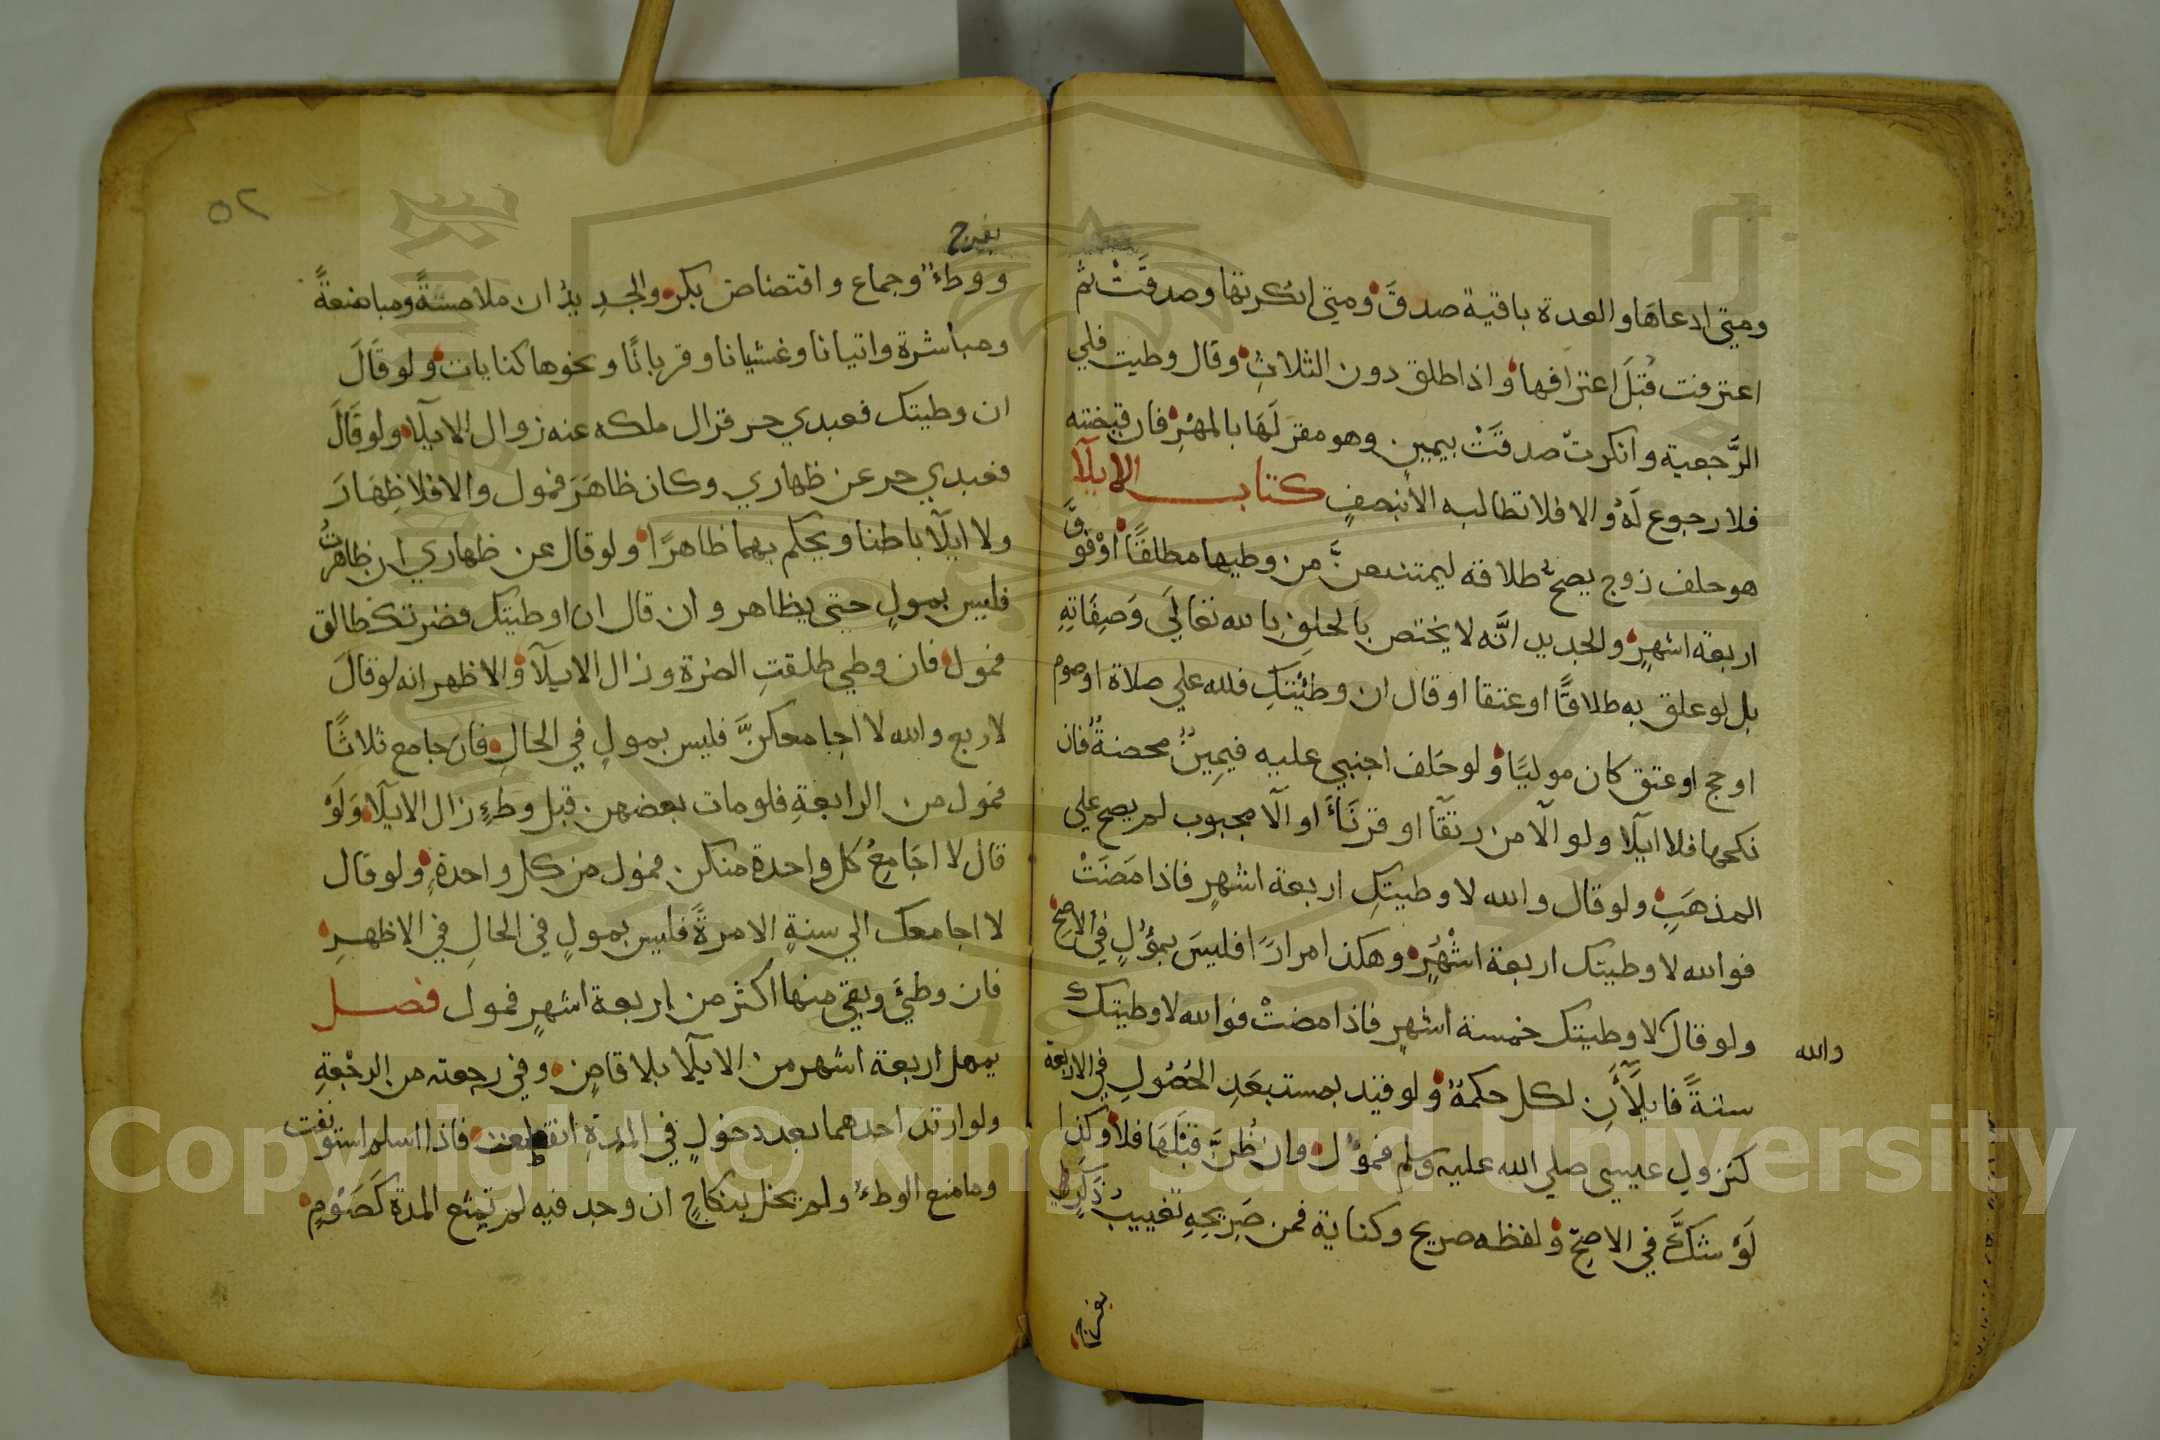 ومتى ادعاهَا والعدة باقية صدقَ ومتى انكرتها وصدقتْ ثم
اعترفت قُبِلَ اعترافها واذا طلق دون الثلاثِ وقال وطيت فلي
الرَّجعية وانكرتْ صدقَتْ بيمين وهو مقر لَهَا بالمهْرِ فان قبضته
فلا رجوع لَهُ والا فلا تطالبه الا بنصفٍ كتاب الايلآ
هو حلف زوج يصح طلاقه ليمتنعنَّ من وطيها مطلقًا اوْ فوقَ
اربعة اشهرٍ والجديد انَّه لا يختص بالحلفِ بالله تعالَى وَصِفَاتِهِ
بل لو علق به طلاقًا او عتقا او قال ان وطئتكِ فلله علي صلاة او صوم
او حج او عتق كان موليًا ولو حَلف اجنبي عليه فيمِينٌ محضةٌ فان
نكحها فلا ايلآ ولو آلا من رتقَا او قرنَأَ او آلا مجبوب لم يصح علي
المذهَبِ ولو قال والله لا وطيتكِ اربعة اشهرٍ فاذا مَضَتْ
فوالله لا وطيتك اربعة اشْهُرٍ وهكذا مرارًا فليسَ بمُوْلٍ في الاصحّ
ولو قال لا وطيتك خمسة اشهرٍ فاذا مضتْ فوالله لا وطيتك
والله
سنةً فايلآَن لكل حكمهُ ولو قيد بمستبعَدِ الحُصُولِ في الاربعة
كنزولِ عيسى صلى الله عليه وسلم فمؤل وان ظُنَّ قبْلَهَا فلا وكذا
لَوْ شكَّ في الاصحّ ولفظه صريح وكناية فمن صَريحِهِ تغييبُ ذَكَرٍ
بفرج
٥٢
بفرج
ووطءٌ وجماع وافتضاض بكر والجديد ان ملامسةً ومباضعةً
ومباشرة واتيانا وغشيانا وقربانًا ونحوها كنايات ولو قَالَ
ان وطيتك فعبدي حر فزال ملكه عنه زوال الايلآ ولو قَالَ
فعبدي حر عن ظهاري وكان ظاهَرَ فمول والا فلا ظِهَارَ
ولا ايلآ باطنا ويحكم بهما ظاهرًا ولو قال عن ظهاري ان ظاهرتُ
فليس بمولٍ حتى يظاهر وان قال ان اوطيتك فضرتك طالق
فمول فان وطي طلقتِ الضرة وزال الايلآ والاظهر انه لو قالَ
لاربع والله لا اجامعكنَّ فليس بمولٍ في الحالِ فان جامع ثلاثًا
فمول من الرابعةِ فلو مات بعضهن قبل وطءٍ زال الايلآ وَلَوْ
قال لا اجَامِعُ كل واحدة منكن فمول من كل واحدةٍ ولو قال
لا اجامعك الي سنةٍ الا مرةً فليس بمولٍ في الحالِ في الاظهرِ
فان وطئَ وبقي منها اكثر من اربعة اشهرٍ فمول فصل
يمهل اربعة اشهر من الايلآ بلا قاضٍ وفي رجعته من الرجْعةِ
ولو ارتد احدهما بعد دخولٍ في المدةِ انقطعت فاذا اسلم استونفت
وما منع الوطءَ ولم يخل بنكاحٍ ان وجد فيه لم تمنع المدة كَصَوْمٍ